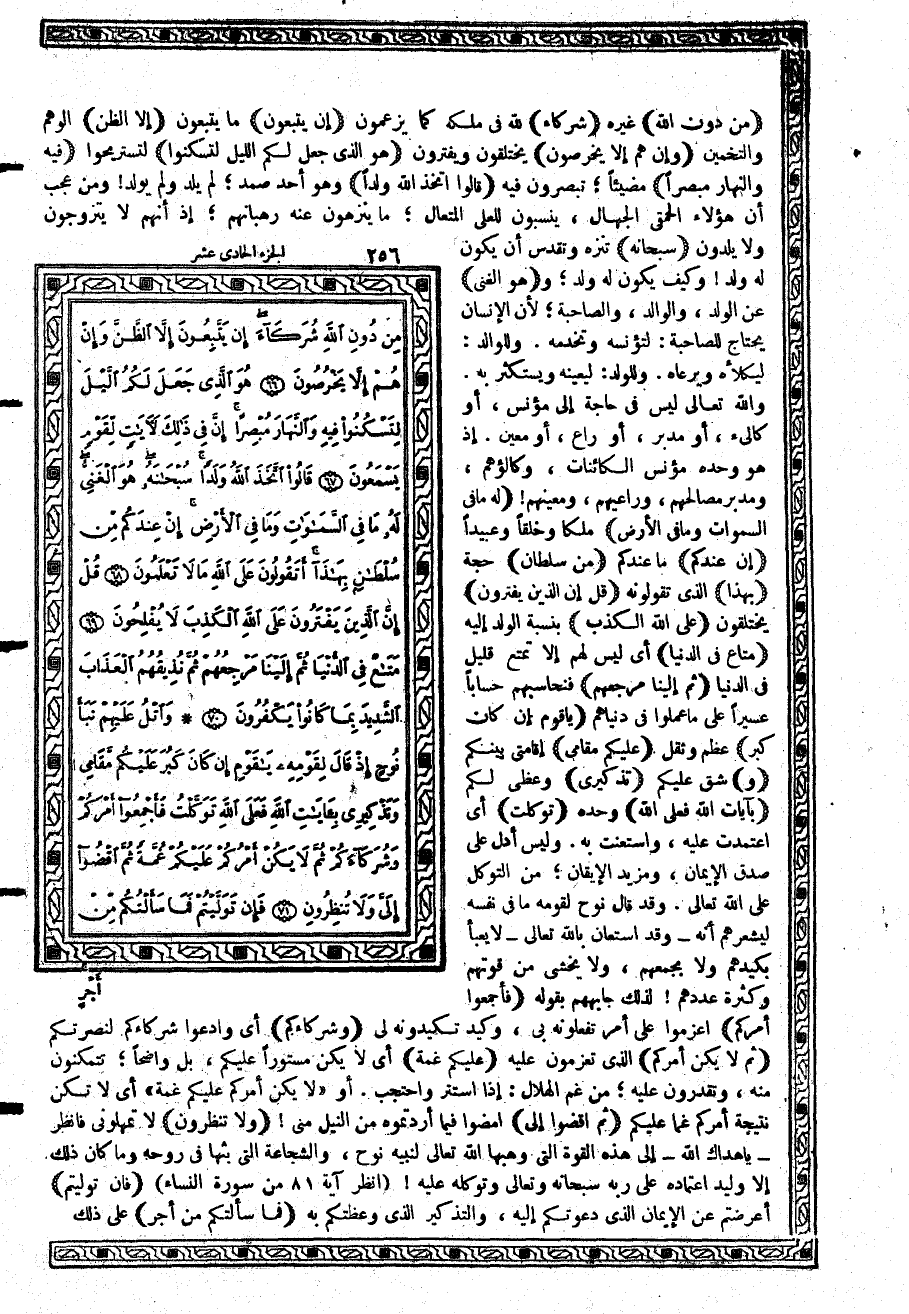 (من دون الله) غيره (شركاء) لله فى ملكه كما يزعمون (إن يتبعون) ما يتبعون (إلا الظن) الوهم
والتخمين (وإن هم إلا يخرصون) يختلقون ويفترون (هو الذى جعل لكم الليل لتسكنوا) لتستريحوا (فيه
والنهار مبصراً) مضيئاً ؛ تبصرون فيه (قالوا اتخذ الله ولداً) وهو أحد صمد ؛ لم يلد ولم يولد! ومن عجب
أن هؤلاء الحمق الجهال ، ينسبون للعلى المتعال ؛ ما ينزهون عنه رهبانهم ؛ إذ أنهم لا يتزوجون
ولا يلدون (سبحانه) تنزه وتقدس أن يكون
له ولد ! وكيف يكون له ولد ؛ و(هو الغنى)
عن الولد ، والوالد ، والصاحبة ؛ لأن الإنسان
يحتاج للصاحبة : لتؤنسه وتخدمه . وللوالد :
ليكلأه ويرعاه . وللولد : ليعينه ويستكثر به .
والله تعالى ليس فى حاجة إلى مؤنس ، أو
كالىء ، أو مدبر ، أو راع ، أو معين . إذ
هو وحده مؤنس الكائنات ، وكالؤهم ،
ومدبر مصالحهم ، وراعيهم ، ومعينهم! (له مافى
السموات ومافى الأرض) ملكا وخلقاً وعبيداً
(إن عندكم) ما عندكم (من سلطان) حجة
(بهذا) الذى تقولونه (قل إن الذين يفترون)
يختلقون (على الله الكذب) بنسبة الولد إليه
(متاع فى الدنيا) أى ليس لهم إلا تمتع قليل
فى الدنيا (ثم إلينا مرجعهم) فنحاسبهم حساباً
عسيراً على ماعملوا فى دنياهم (ياقوم إن كان
كبر) عظم وثقل (عليكم مقامى) إقامتى بينكم
(و) شق عليكم (تذكيرى) وعظى لكم
(بآيات الله فعلى الله) وحده (توكلت) أى
اعتمدت عليه ، واستعنت به . وليس أدل على
صدق الإيمان ، ومزيد الإيقان ؛ من التوكل
على الله تعالى . وقد قال نوح لقومه ما فى نفسه
ليشعرهم أنه ــ وقد استعان بالله تعالى ــ لايعبأ
بكيدهم ولا بجمعهم ، ولا يخشى من قوتهم
وكثرة عددهم ! لذلك جابههم بقوله (فأجمعوا
٢٥٦ الجزء الحادى عشر
مِن دُونِ ٱللَّهِ شُرَكَآءَ ۚ إِن يَتَّبِعُونَ إِلَّا ٱلظَّنَّ وَإِنْ
هُمْ إِلَّا يَخْرُصُونَ ﴿٦٦﴾ هُوَ ٱلَّذِى جَعَلَ لَكُمُ ٱلَّيْلَ
لِتَسْكُنُوا۟ فِيهِ وَٱلنَّهَارَ مُبْصِرًا ۚ إِنَّ فِى ذَٰلِكَ لَـَٔايَـٰتٍ لِّقَوْمٍ
يَسْمَعُونَ ﴿٦٧﴾ قَالُوا۟ ٱتَّخَذَ ٱللَّهُ وَلَدًا ۗ سُبْحَـٰنَهُۥ ۖ هُوَ ٱلْغَنِىُّ ۖ
لَهُۥ مَا فِى ٱلسَّمَـٰوَٰتِ وَمَا فِى ٱلْأَرْضِ ۚ إِنْ عِندَكُم مِّن
سُلْطَـٰنٍۭ بِهَـٰذَآ ۚ أَتَقُولُونَ عَلَى ٱللَّهِ مَا لَا تَعْلَمُونَ ﴿٦٨﴾ قُلْ
إِنَّ ٱلَّذِينَ يَفْتَرُونَ عَلَى ٱللَّهِ ٱلْكَذِبَ لَا يُفْلِحُونَ ﴿٦٩﴾
مَتَـٰعٌ فِى ٱلدُّنْيَا ثُمَّ إِلَيْنَا مَرْجِعُهُمْ ثُمَّ نُذِيقُهُمُ ٱلْعَذَابَ
ٱلشَّدِيدَ بِمَا كَانُوا۟ يَكْفُرُونَ ﴿٧٠﴾ * وَٱتْلُ عَلَيْهِمْ نَبَأَ
نُوحٍ إِذْ قَالَ لِقَوْمِهِۦ يَـٰقَوْمِ إِن كَانَ كَبُرَ عَلَيْكُم مَّقَامِى
وَتَذْكِيرِى بِـَٔايَـٰتِ ٱللَّهِ فَعَلَى ٱللَّهِ تَوَكَّلْتُ فَأَجْمِعُوٓا۟ أَمْرَكُمْ
وَشُرَكَآءَكُمْ ثُمَّ لَا يَكُنْ أَمْرُكُمْ عَلَيْكُمْ غُمَّةً ثُمَّ ٱقْضُوٓا۟
إِلَىَّ وَلَا تُنظِرُونِ ﴿٧١﴾ فَإِن تَوَلَّيْتُمْ فَمَا سَأَلْتُكُم مِّنْ
أَجْرٍ
أمركم) اعزموا على أمر تفعلونه بى ، وكيد تكيدونه لى (وشركاءكم) أى وادعوا شركاءكم لنصرتكم
(ثم لا يكن أمركم) الذى تعزمون عليه (عليكم غمة) أى لا يكن مستوراً عليكم ، بل واضحاً ؛ تتمكنون
منه ، وتقدرون عليه ؛ من غم الهلال : إذا استتر واحتجب . أو «لا يكن أمركم عليكم غمة» أى لا تكن
نتيجة أمركم غما عليكم (ثم اقضوا إلى) امضوا فيما أردتموه من النيل منى ! (ولا تنظرون) لا تمهلونى فانظر
ــ ياهداك الله ــ إلى هذه القوة التى وهبها الله تعالى لنبيه نوح ، والشجاعة التى بثها فى روحه وما كان ذلك
إلا وليد اعتماده على ربه سبحانه وتعالى وتوكله عليه ! (انظر آية ٨١ من سورة النساء) (فان توليتم)
أعرضتم عن الإيمان الذى دعوتكم إليه ، والتذكير الذى وعظتكم به (فما سألتكم من أجر) على ذلك